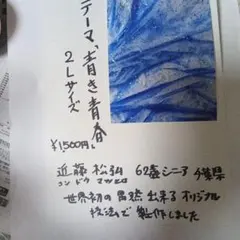 テーマ、青き青春
2Lサイズ
¥1,500円
近藤 松弘 62歳シニア 千葉県
コンドウ マツヒロ
世界初の 出来る オリジナル
技法で製作しました